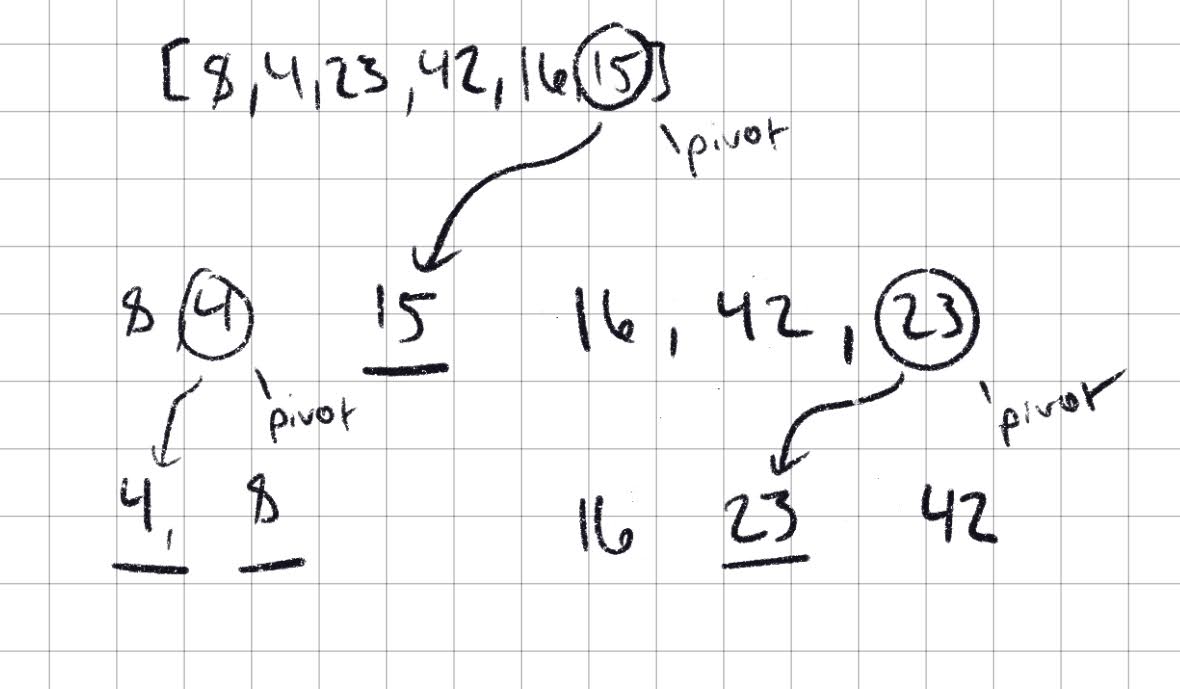 [8,4,23,42,16,15]
pivot
8 4 15 16, 42, 23
pivot pivot
4, 8 16 23 42